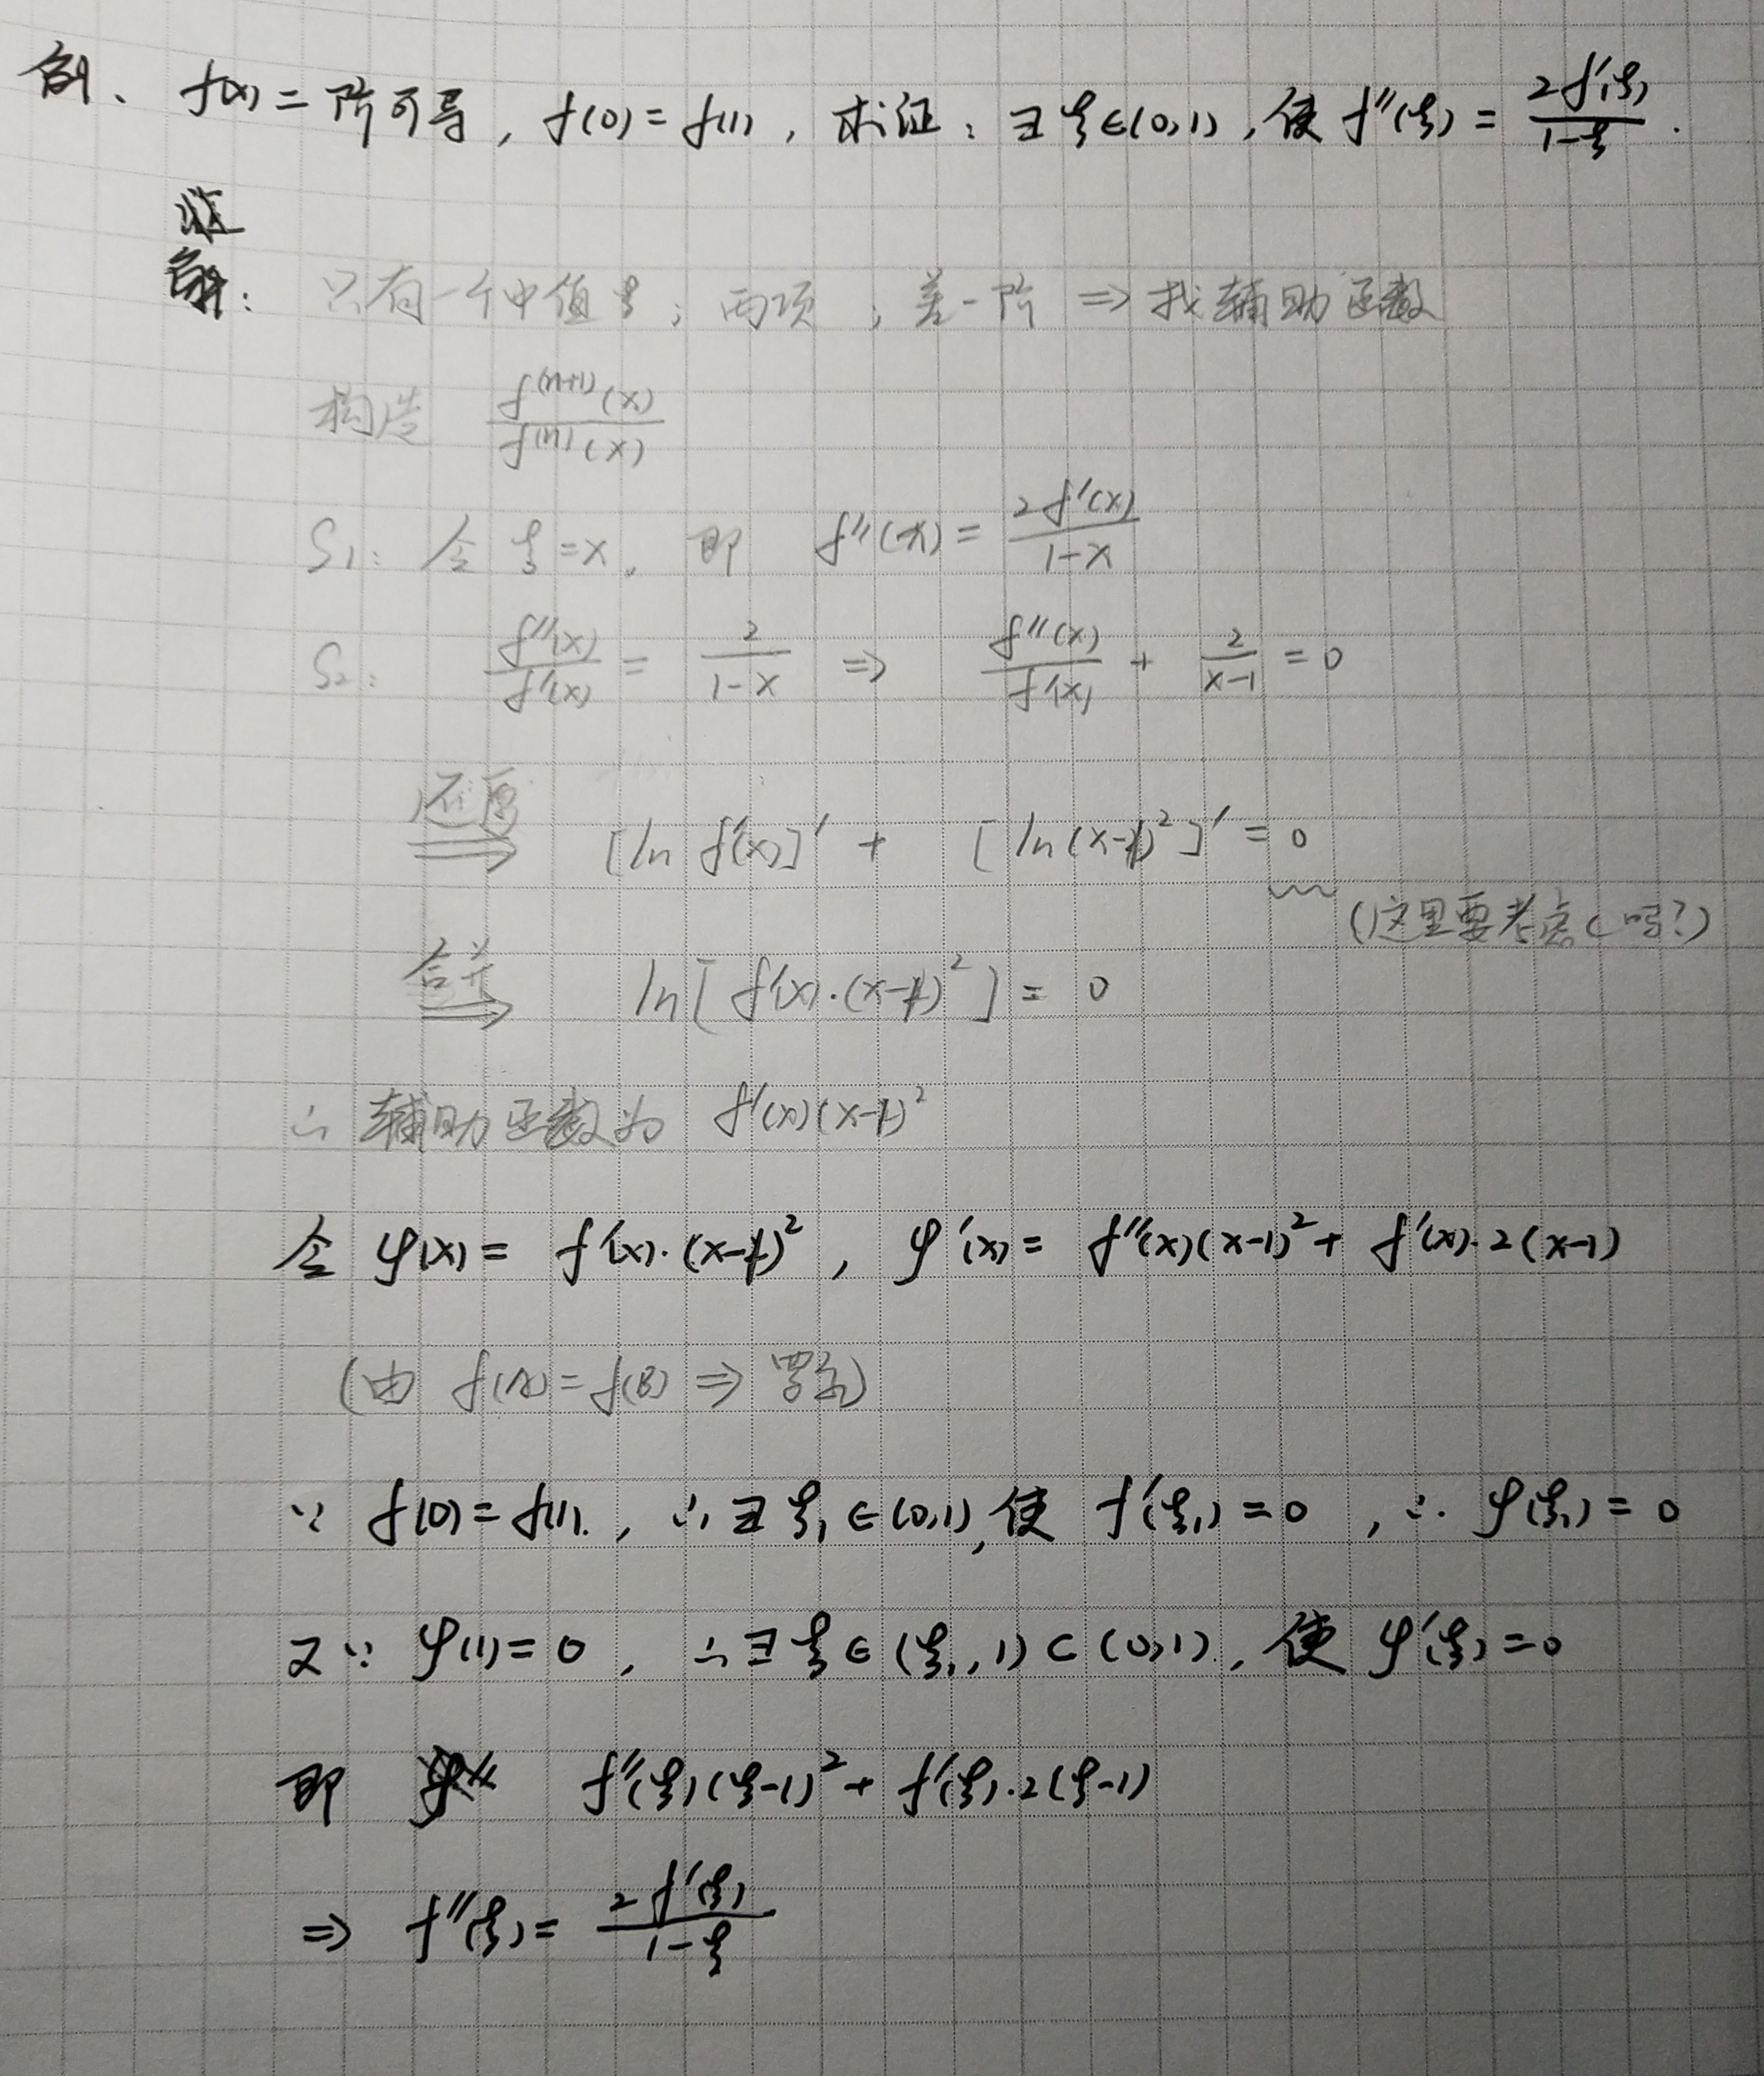 例、f(x)二阶可导，f(0)=f(1)，求证：∃ξ∈(0,1)，使 f''(ξ)=2f'(ξ)/(1-ξ).
证
只有一个中值ξ；两项；差一阶 ⇒ 找辅助函数
构造 f⁽ⁿ⁺¹⁾(x)/f⁽ⁿ⁾(x)
S₁：令 ξ=x，即 f''(x)=2f'(x)/(1-x)
S₂： f''(x)/f'(x) = 2/(1-x) ⇒ f''(x)/f'(x) + 2/(x-1) = 0
还原 ⇒ [ln f'(x)]' + [ln(x-1)²]' = 0
(这里要考虑C吗？)
合并 ⇒ ln[f'(x)·(x-1)²] = 0
∴ 辅助函数为 f'(x)(x-1)²
令 φ(x)= f'(x)·(x-1)²，φ'(x)= f''(x)(x-1)²+ f'(x)·2(x-1)
(由 f(A)=f(B) ⇒ 罗尔)
∵ f(0)=f(1)，∴∃ξ₁∈(0,1)，使 f'(ξ₁)=0，∴ φ(ξ₁)=0
又∵ φ(1)=0，∴∃ξ∈(ξ₁,1)⊂(0,1)，使 φ'(ξ)=0
即 f''(ξ)(ξ-1)²+ f'(ξ)·2(ξ-1)
⇒ f''(ξ)= 2f'(ξ)/(1-ξ)